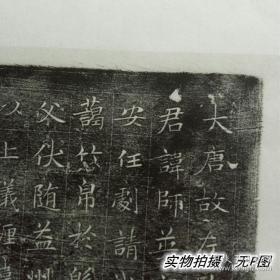 大唐故左
君諱師並
安任劇請
藹簪帛於
父伏随益州
以上儀
实物拍摄、无P图